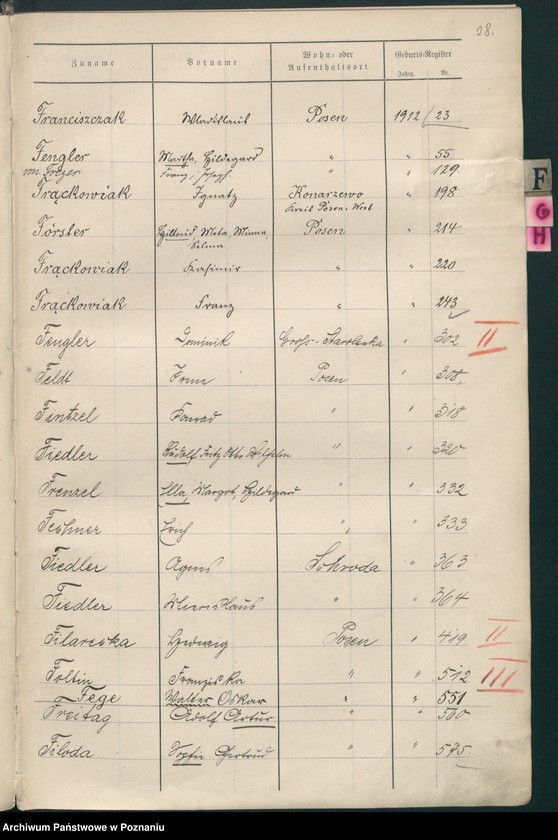 28.
Zuname Vorname Wohn- oder Aufenthaltsort Geburts-Register
Jahrg. Nr.
Franciszczak Wladislaus Posen 1912 23
Fengler Martha, Hildegard " " 55
von Franz, Joseph " " 129
Frąckowiak Ignatz Konarzewo " 198
Kreis Posen-West
Förster Meta, Minna, Posen " 214
Selma
Frąckowiak Kasimir " " 220
Frąckowiak Franz " " 243
Fengler Dominik Gross-Starolenka " 302 II
Feldt Irene Posen " 308,
Fintzel Konrad " " 318
Fiedler Rudolf Fritz Otto Wilhelm " " 320
Frenzel Ella, Margot, Hildegard " " 332
Feshner Erich " " 333
Fiedler Agnes Schroda " 363
Fiedler " " 364
Filareska Hedwig Posen " 419 II
Foltin Franziska " " 512 III
Fege Walter Oskar " " 551
Freitag Adolf Artur " " 560
Filoda Sophie Gertrud " " 575
F
G
H
Archiwum Państwowe w Poznaniu